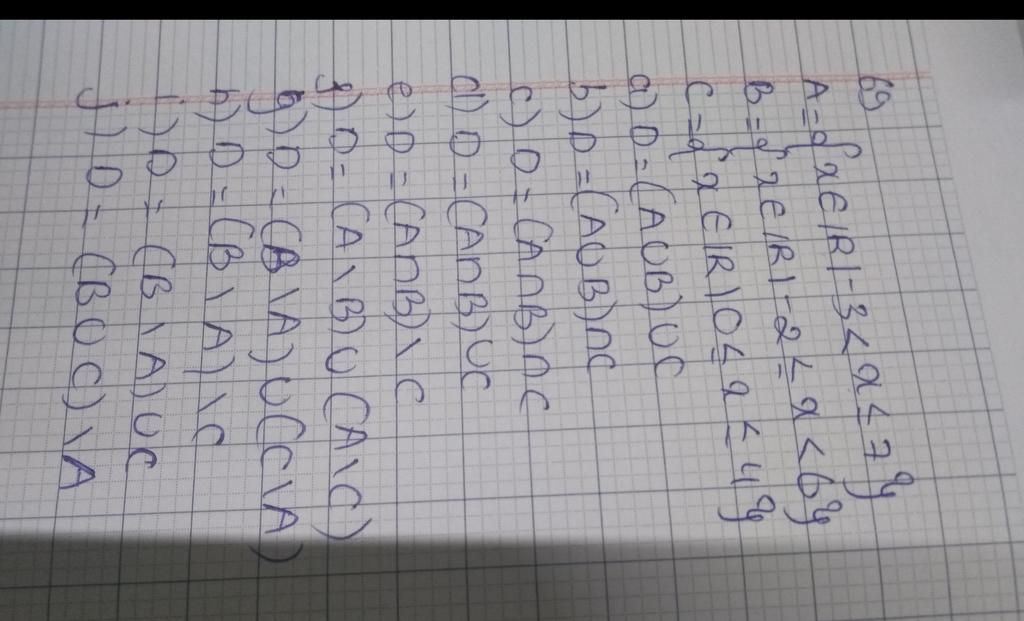 69
A={x∈R|-3<x≤7}
B={x∈R|-2≤x<6}
C={x∈R|0≤x≤4}
a) D=(A∪B)∪C
b) D=(A∪B)∩C
c) D=(A∩B)∩C
d) D=(A∩B)∪C
e) D=(A∩B)\C
f) D=(A\B)∪(A\C)
g) D=(B\A)∪(C\A)
h) D=(B\A)\C
i) D=(B\A)∪C
j) D=(B∪C)\A